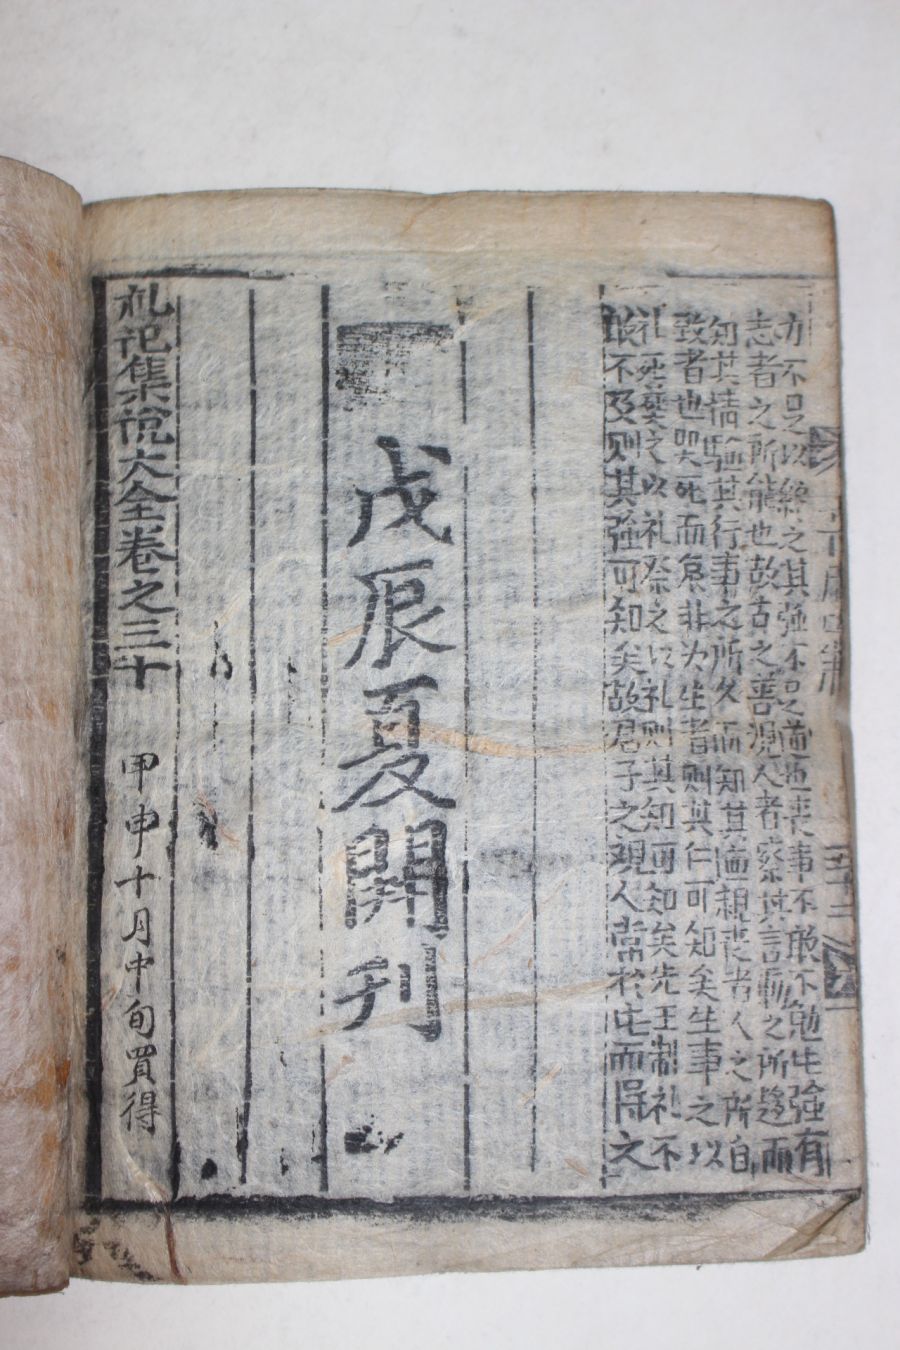 力不足以終之其強不足道也喪事不敢不勉此強有
志者之所能也故古之善觀人者察其言而之所趨而
知其情驗其行事之所久而知其
親喪者人之所自
致者也哭死而哀非为生者則其仁可知矣生事之以
礼死葬之以礼祭之以礼則其知可知矣先王制礼不
敢不及則其強可知矣故君子之观人常於此而得之
戊辰夏開刊
礼记集說大全卷之三十
甲申十月中旬買得